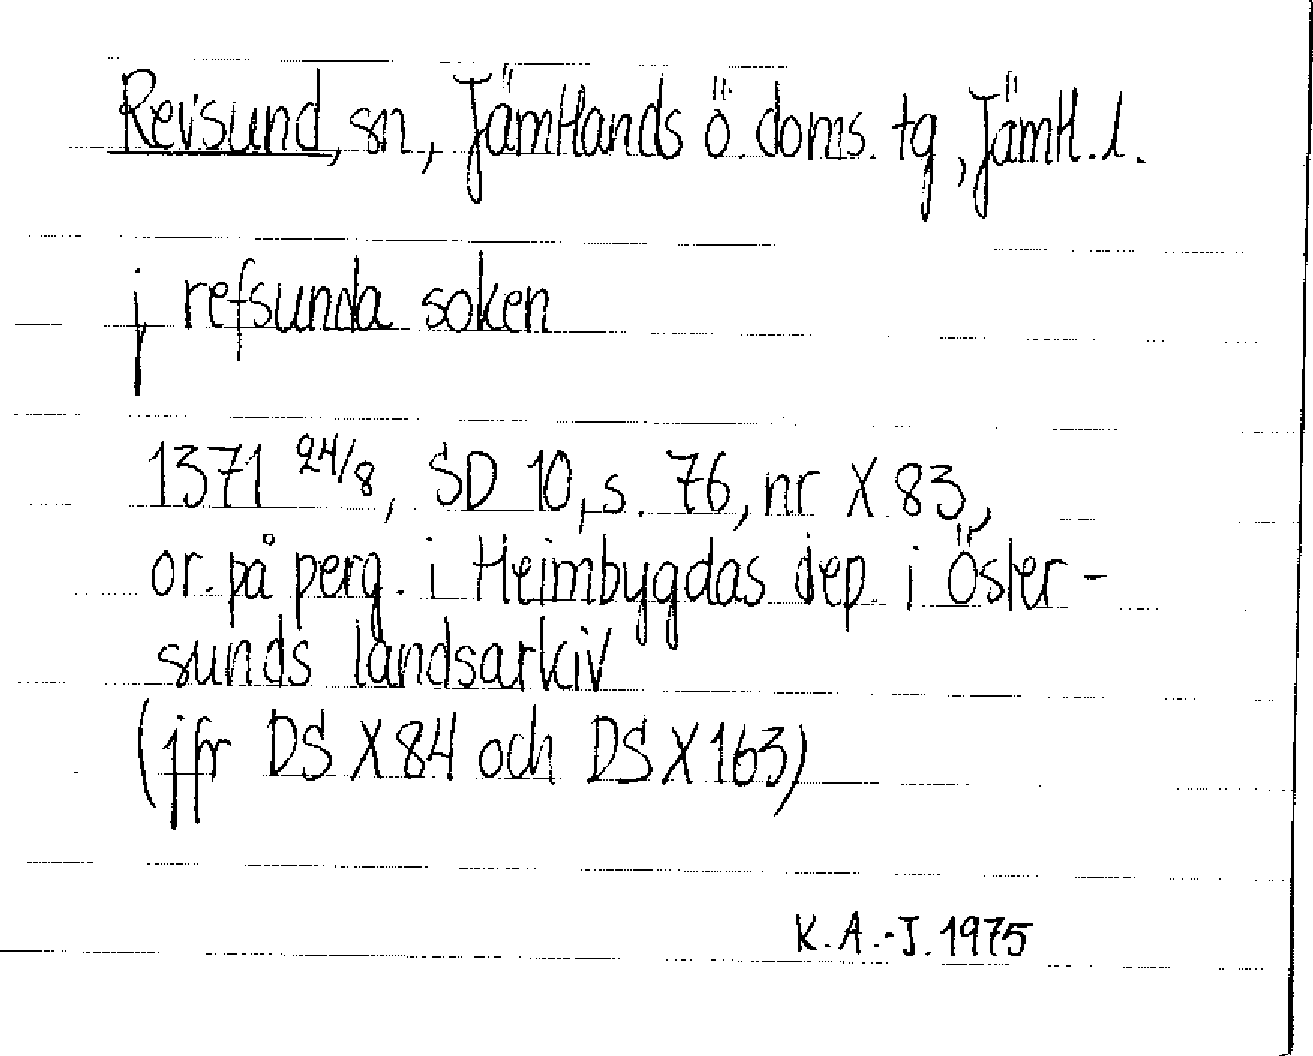 Revsund, sn, Jämtlands ö. doms. tg, Jämtl. l.
j refsunda soken
1371 24/8, SD 10, s. 76, nr X 83,
or. på perg. i Heimbygdas dep. i Öster-
sunds landsarkiv
(jfr DS X 84 och DS X 163)
K. A.-J. 1975